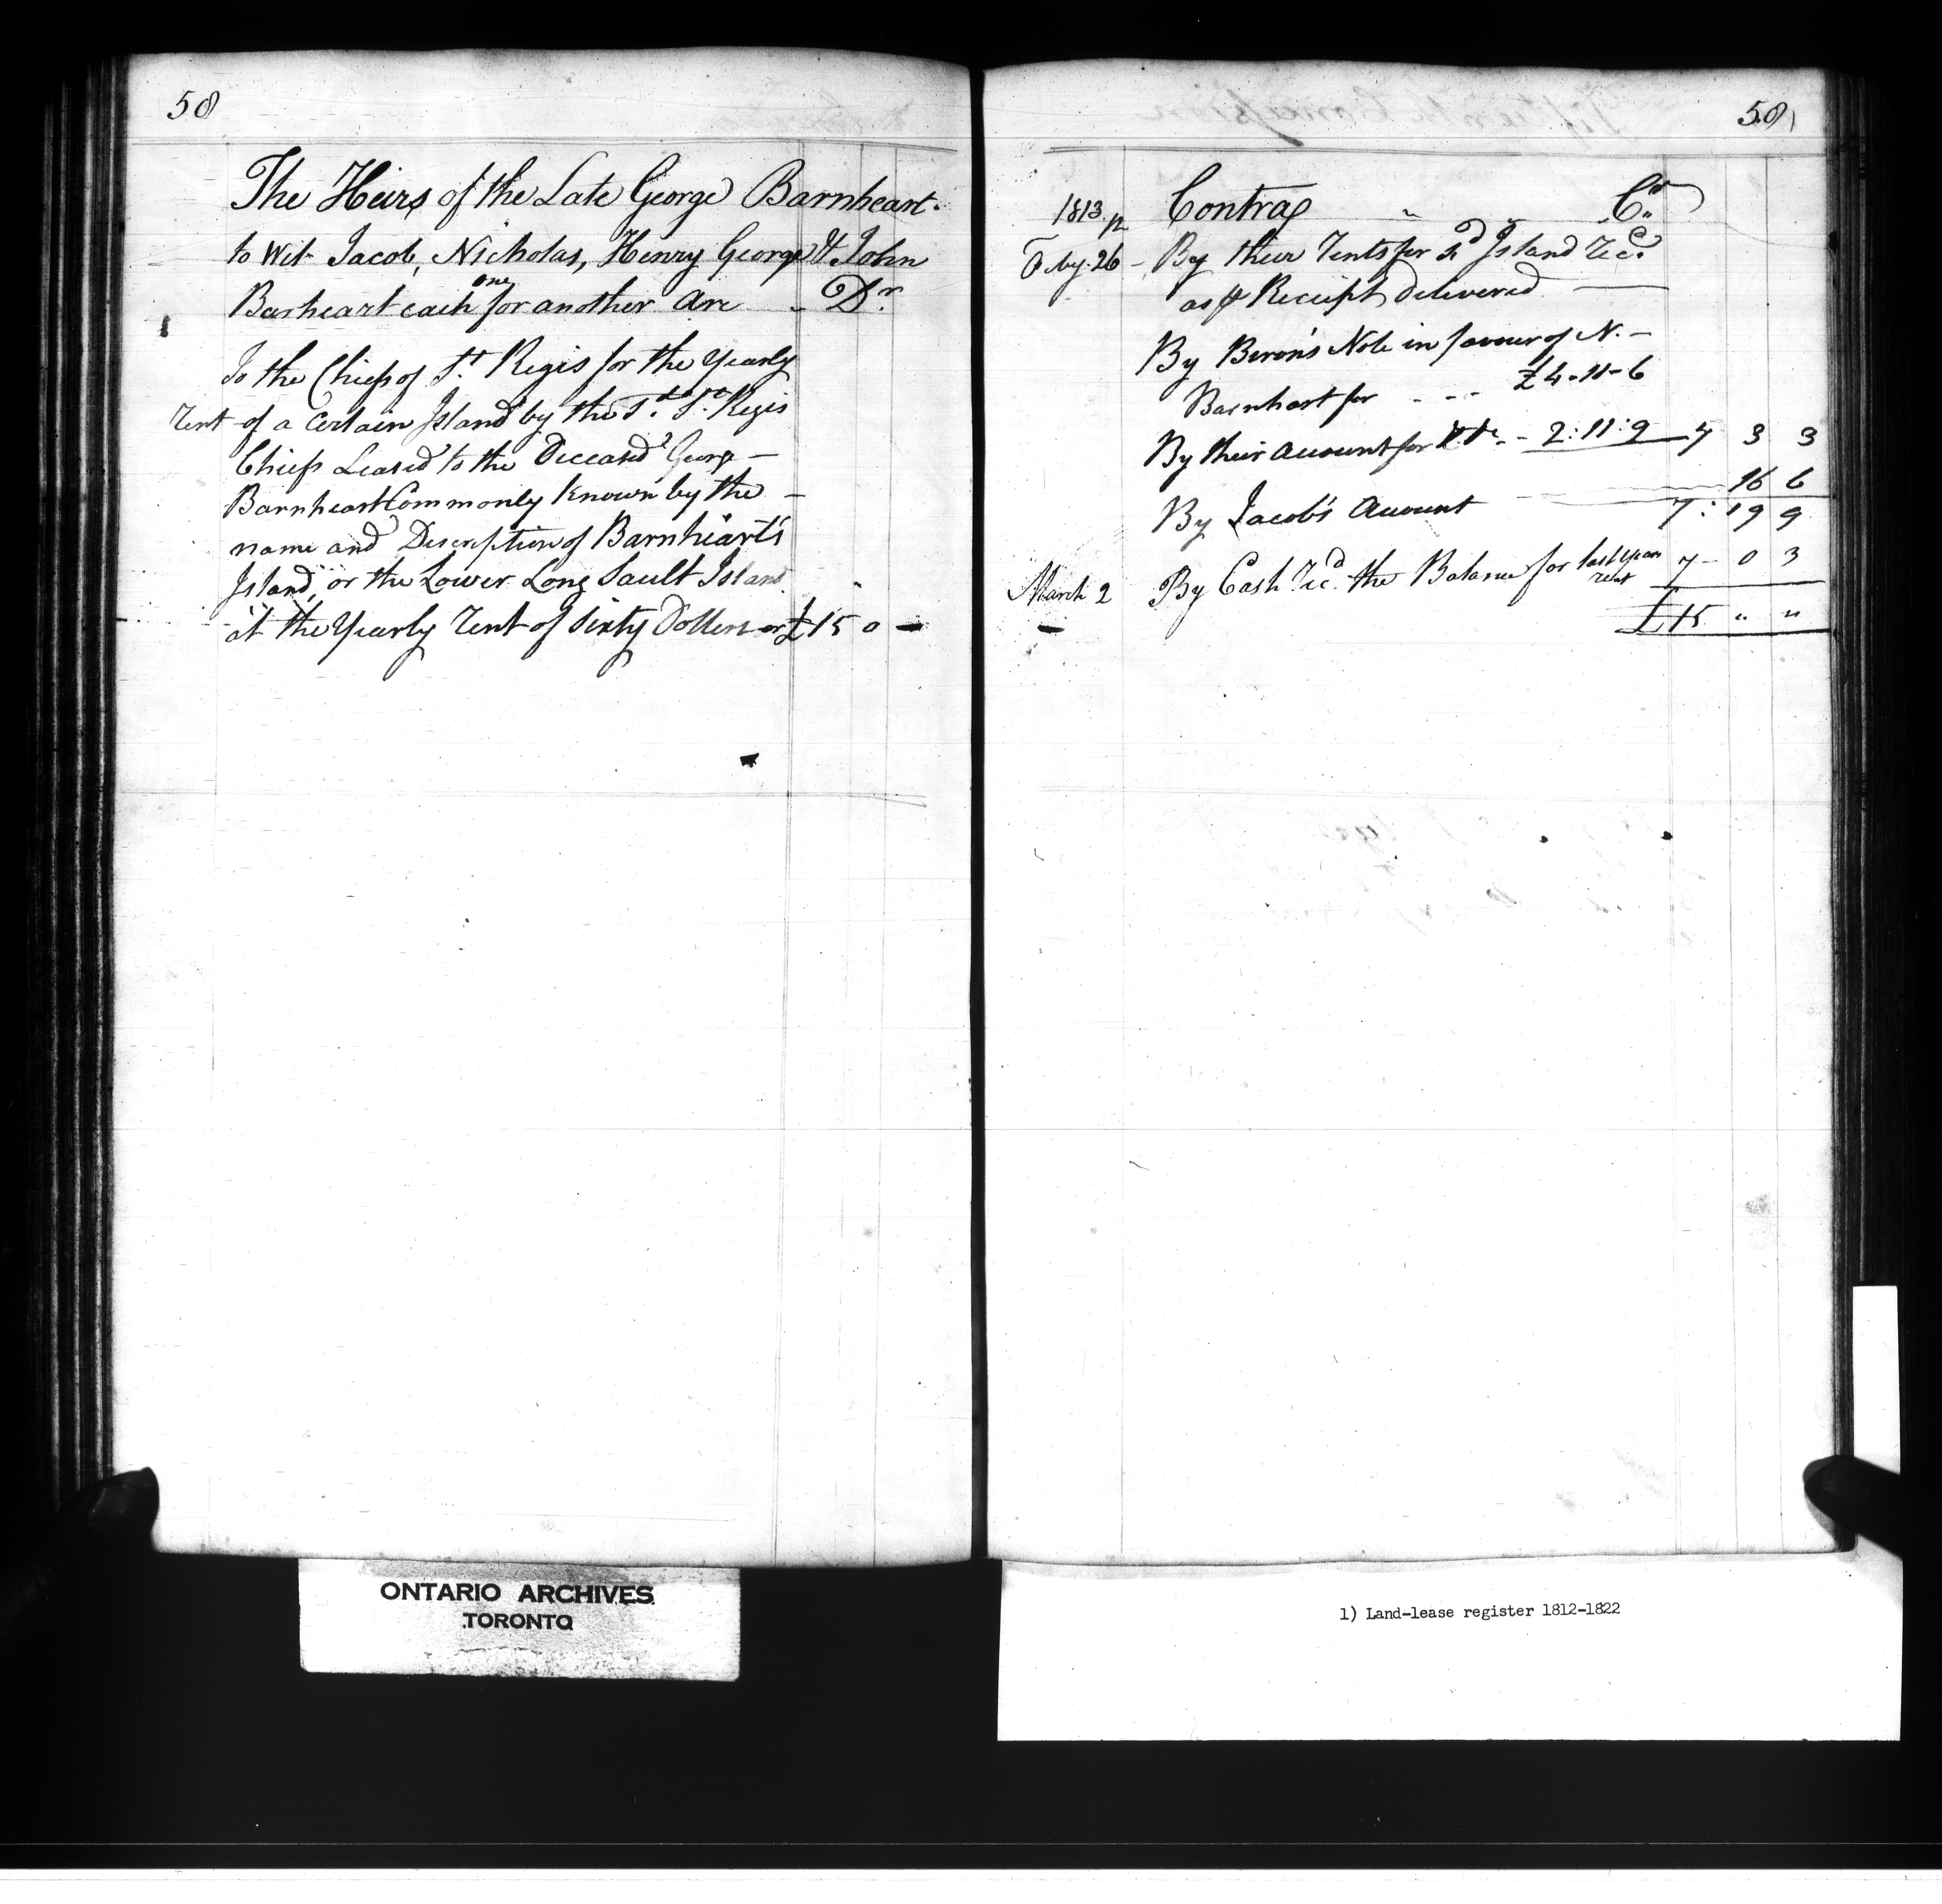 58
The Heirs of the Late George Barnheart.
to Wit Jacob, Nicholas, Henry George & John
Barheart each one for another are - Dr.
To the Chiefs of St. Regis for the Yearly
rent of a Certain Island by the Sd. St. Regis
Chiefs Leased to the Deceased George -
Barnheart Commonly Known by the -
name and Description of Barnheart's
Island, or the Lower Long Sault Island
at the Yearly Rent of Sixty Dollers or £15 0 -
58
1813 Contra Cr.
Feby. 26 - By their Rents for Sd Island Recd.
as pr Receipt delivered
By Beron's Note in favour of N. -
Barnhart for - - - £4-11-6
By their account for - 2:11:9 7 3 3
16 6
By Jacob's Account 7:19 9
March 2 By Cash Recd. the Balance for last year rent 7-0 3
£15 " "
ONTARIO ARCHIVES
TORONTO
1) Land-lease register 1812-1822